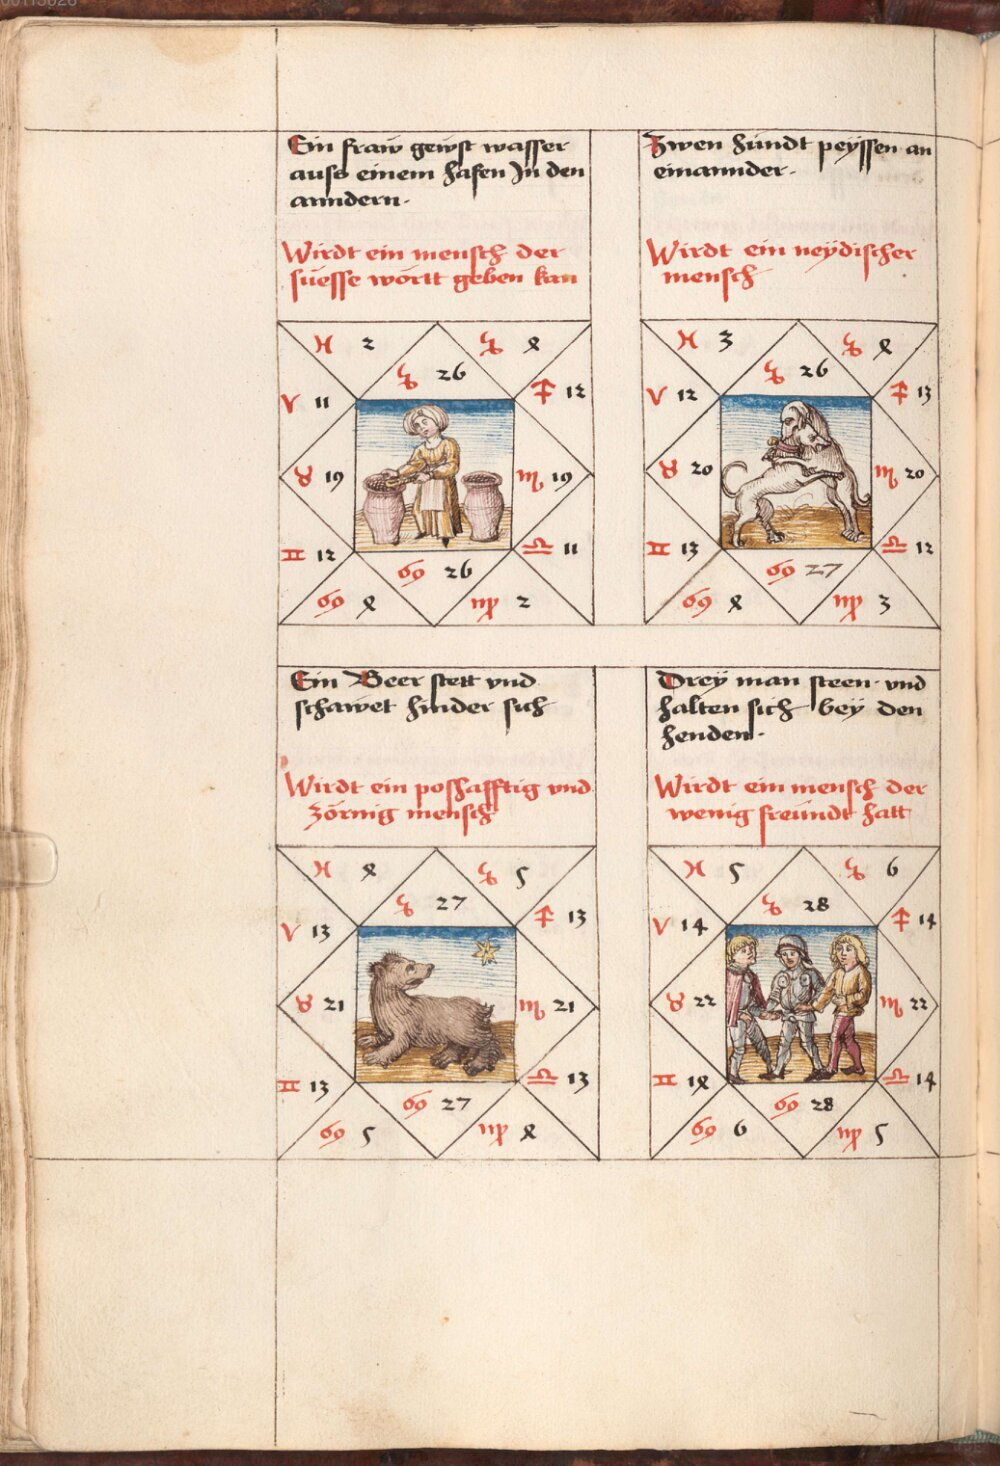 Ein fraw gewst wasser
auss einem hafen Jn den
anndern.
Wirdt ein mensch der
süesse wortt geben kan
♓ 2
♑ 8
♑ 26
♈ 11
♐ 12
♉ 19
♏ 19
♊ 12
♎ 11
♋ 26
♋ 8
♍ 2
Zwen hundt peyssen an
einannder.
Wirdt ein neydischer
mensch
♓ 3
♑ 8
♑ 26
♈ 12
♐ 13
♉ 20
♏ 20
♊ 13
♎ 12
♋ 27
♋ 8
♍ 3
Ein Beer stett vnd
schawet hinder sich
Wirdt ein poshafftig vnd
zörnig mensch
♓ 8
♑ 5
♑ 27
♈ 13
♐ 13
♉ 21
♏ 21
♊ 13
♎ 13
♋ 27
♋ 5
♍ 8
Drey man steen vnd
halten sich bey den
henden.
Wirdt ein mensch der
wenig freundt hatt
♓ 5
♑ 6
♑ 28
♈ 14
♐ 14
♉ 22
♏ 22
♊ 18
♎ 14
♋ 28
♋ 6
♍ 5